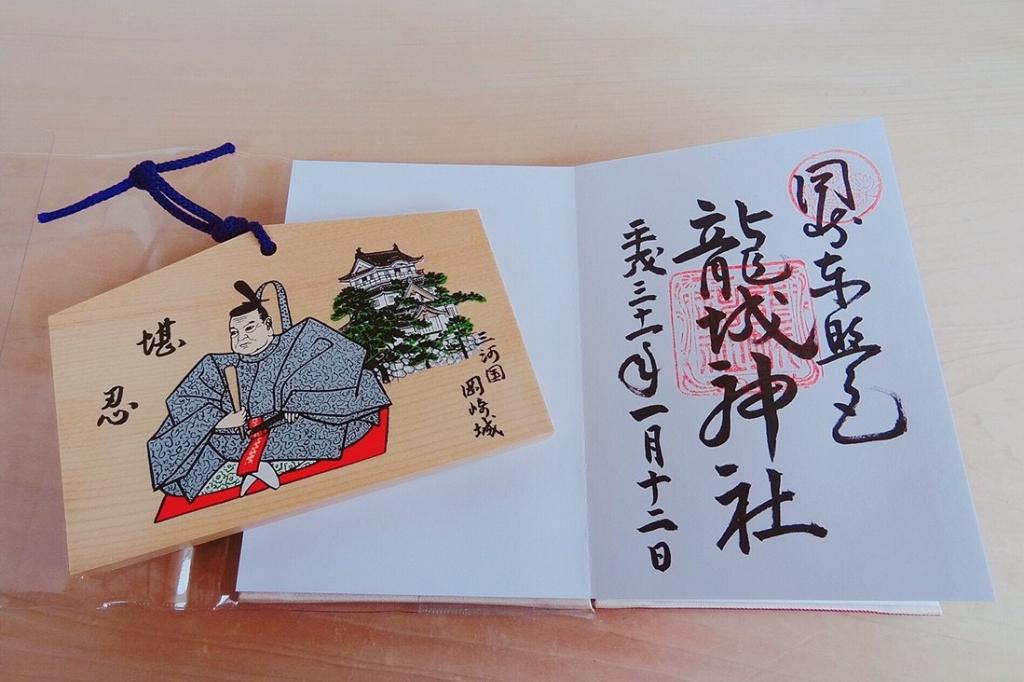 堪忍
三河国
岡崎城
岡崎東照宮
龍城神社
平成三十一年一月十二日